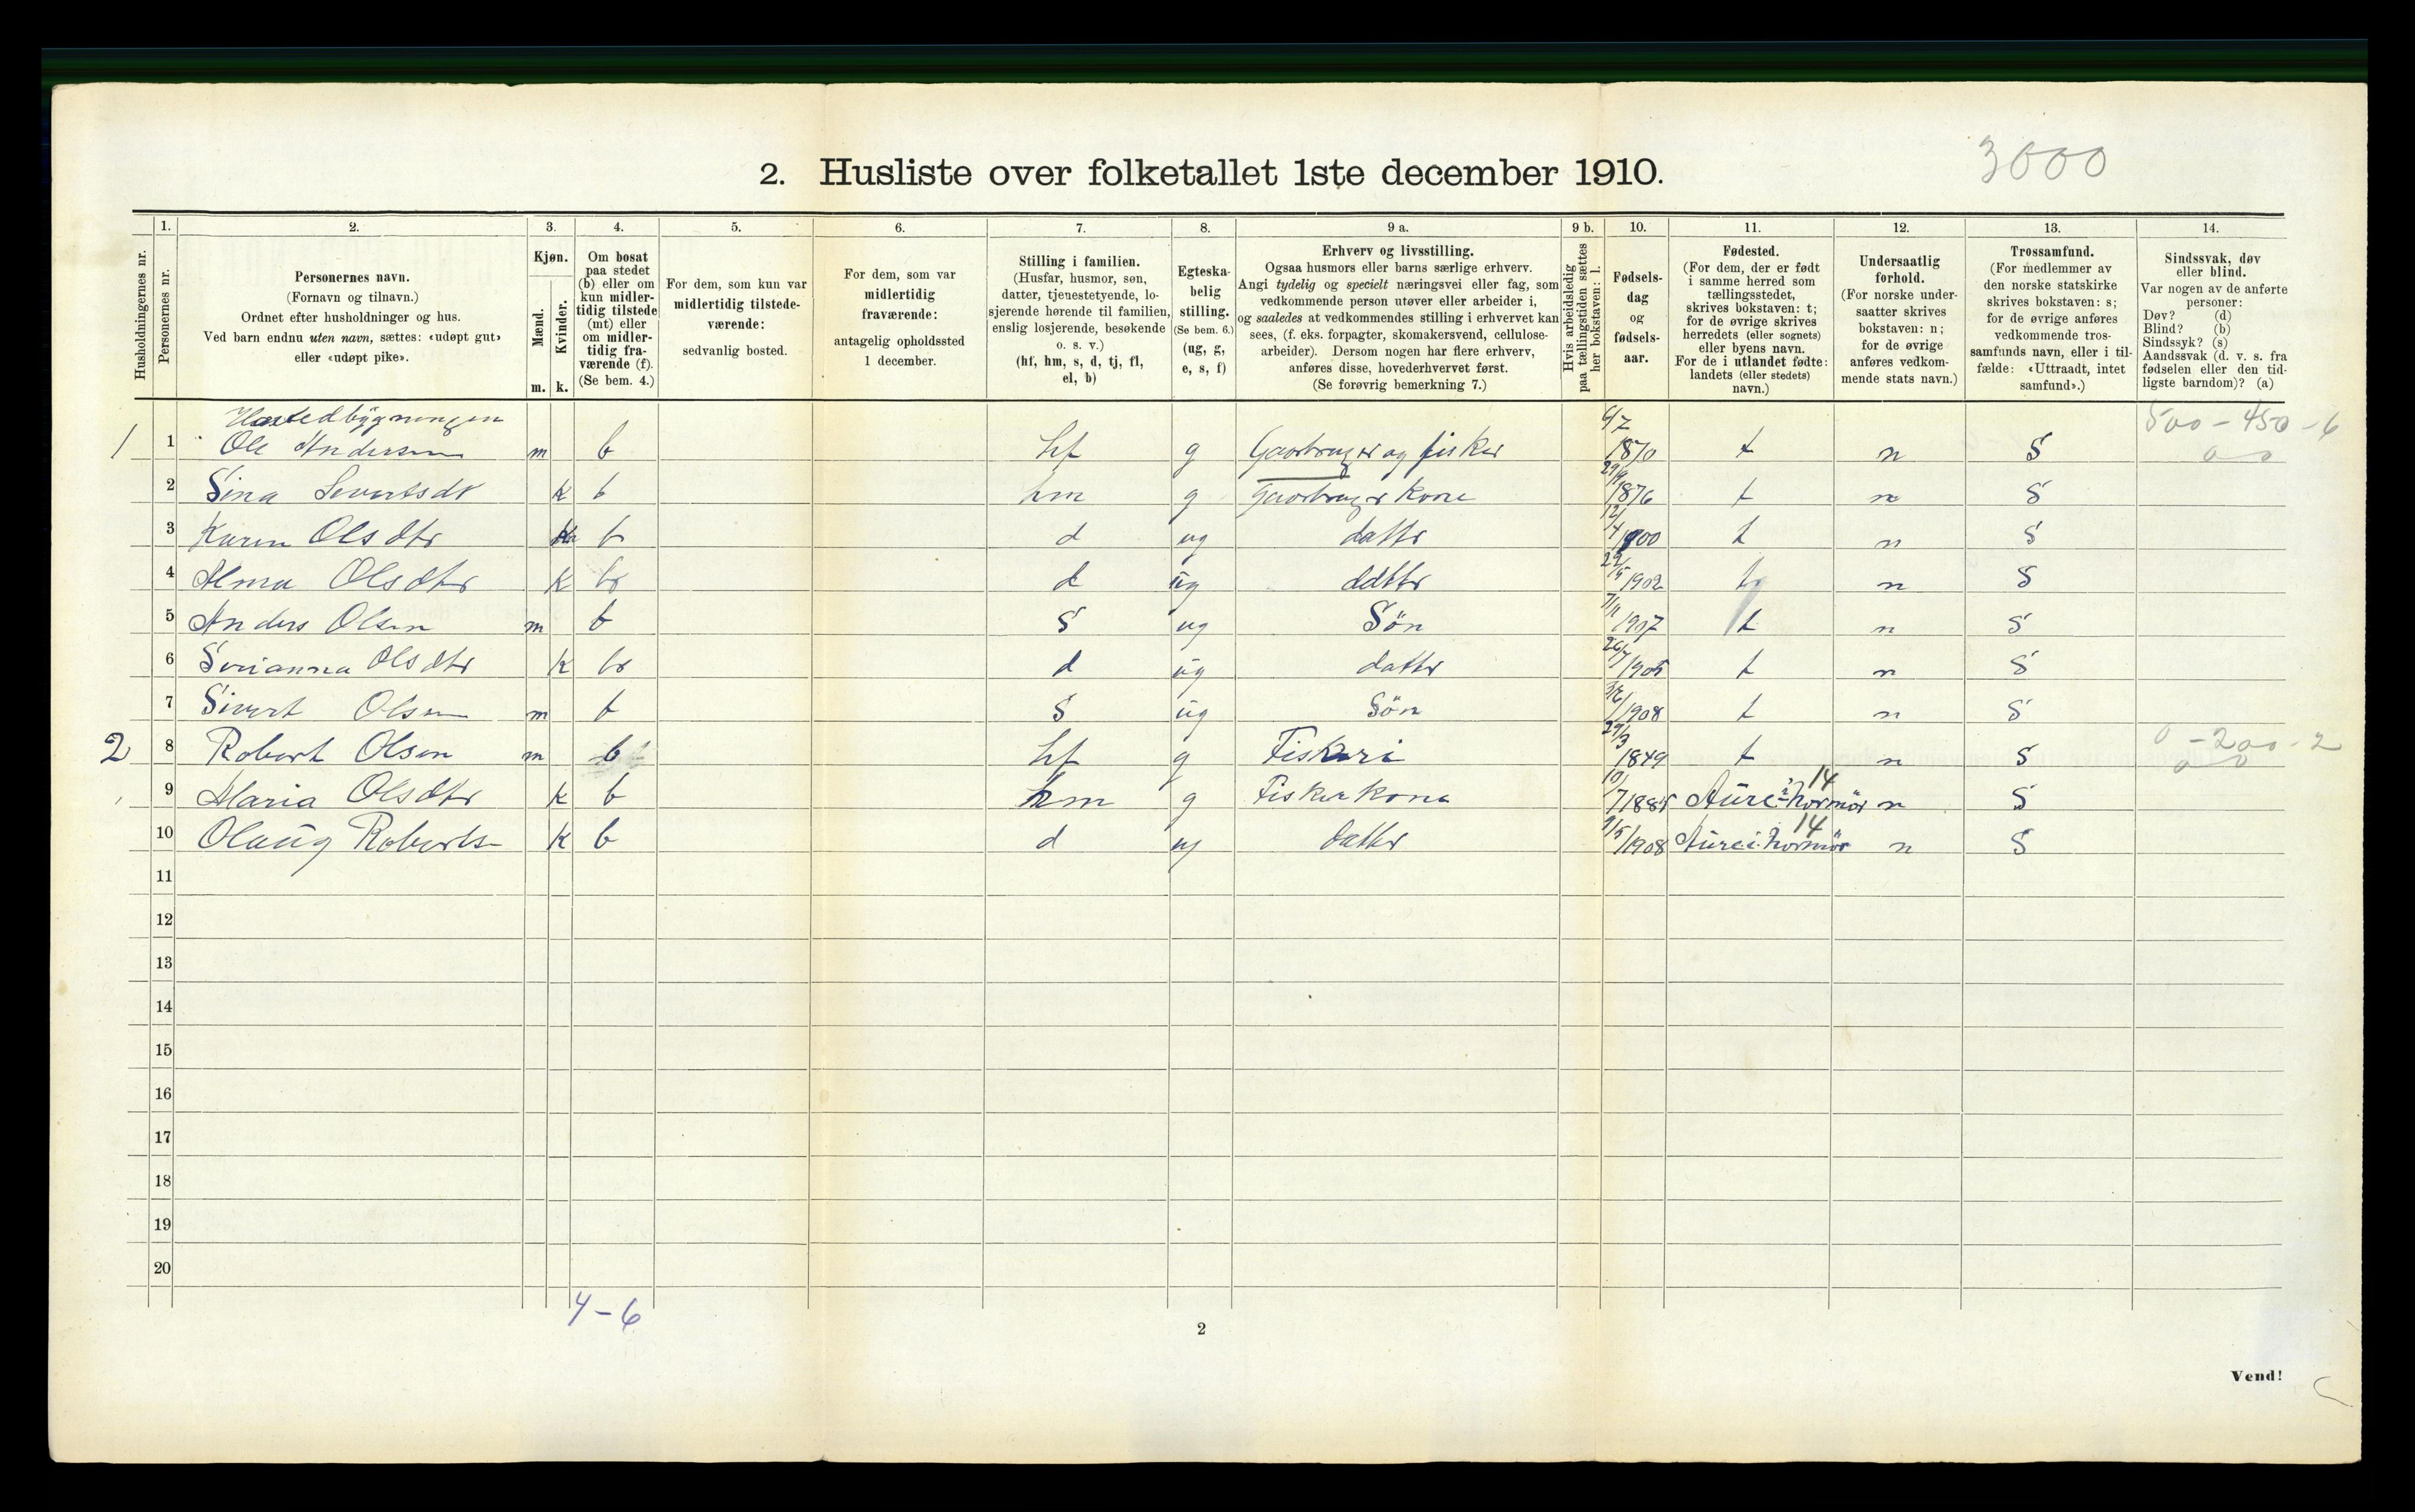 3000
2. Husliste over folketallet 1ste december 1910.
Husholdningernes nr.
1.
Personernes nr.
2.
Personernes navn.
(Fornavn og tilnavn.)
Ordnet efter husholdninger og hus.
Ved barn endnu uten navn, sættes: «udøpt gut»
eller «udøpt pike».
3.
Kjøn.
Mænd.
Kvinder.
m. k.
4.
Om bosat
paa stedet
(b) eller om
kun midler-
tidig tilstede
(mt) eller
om midler-
tidig fra-
værende (f).
(Se bem. 4.)
5.
For dem, som kun var
midlertidig tilstede-
værende:
sedvanlig bosted.
6.
For dem, som var
midlertidig
fraværende:
antagelig opholdssted
1 december.
7.
Stilling i familien.
(Husfar, husmor, søn,
datter, tjenestetyende, lo-
sjerende hørende til familien,
enslig losjerende, besøkende
o. s. v.)
(hf, hm, s, d, tj, fl,
el, b)
8.
Egteska-
belig
stilling.
(Se bem. 6.)
(ug, g,
e, s, f)
9 a.
Erhverv og livsstilling.
Ogsaa husmors eller barns særlige erhverv.
Angi tydelig og specielt næringsvei eller fag, som
vedkommende person utøver eller arbeider i,
og saaledes at vedkommendes stilling i erhvervet kan
sees, (f. eks. forpagter, skomakersvend, cellulose-
arbeider). Dersom nogen har flere erhverv,
anføres disse, hovederhvervet først.
(Se forøvrig bemerkning 7.)
9 b.
Hvis arbeidsledig
paa tællingstiden sættes
her bokstaven: l.
10.
Fødsels-
dag
og
fødsels-
aar.
11.
Fødested.
(For dem, der er født
i samme herred som
tællingsstedet,
skrives bokstaven: t;
for de øvrige skrives
herredets (eller sognets)
eller byens navn.
For de i utlandet fødte:
landets (eller stedets)
navn.)
12.
Undersaatlig
forhold.
(For norske under-
saatter skrives
bokstaven: n;
for de øvrige
anføres vedkom-
mende stats navn.)
13.
Trossamfund.
(For medlemmer av
den norske statskirke
skrives bokstaven: s;
for de øvrige anføres
vedkommende tros-
samfunds navn, eller i til-
fælde: «Uttraadt, intet
samfund».)
14.
Sindssvak, døv
eller blind.
Var nogen av de anførte
personer:
Døv? (d)
Blind? (b)
Sindssyk? (s)
Aandssvak (d. v. s. fra
fødselen eller den tid-
ligste barndom)? (a)
500 - 450 - 6
1 1 Ole Andersen m b hf g Gaarbruger og fisker 6/7 1870 t n S
2 Sina Severtsdt k b hm g gaarbruger kone 1876 t n S
3 Karen Olsdtr b d ug dattr 12/4 1900 t n S
4 Alma Olsdtr k b d ug dattr 22/5 1902 t n S
5 Anders Olsen m b S ug Sön 7/11 1907 t n S
6 Sivrianna Olsdtr k b d ug dattr 26/7 1905 t n S
7 Sivert Olsen m b S ug Sön 1908 t n S
2 8 Robert Olsen m b hf g Fiskeri 29/3 1849 t n S 0 - 200 - 2
9 Maria Olsdtr k b hm g Fisker kona 10/7 1885 Aure i Normör 14 n S
10 Olaug Roberts k b d ug dattr 9/5 1908 Aure i Normör 14 n S
11
12
13
14
15
16
17
18
19
20
4 - 6
2
Vend!